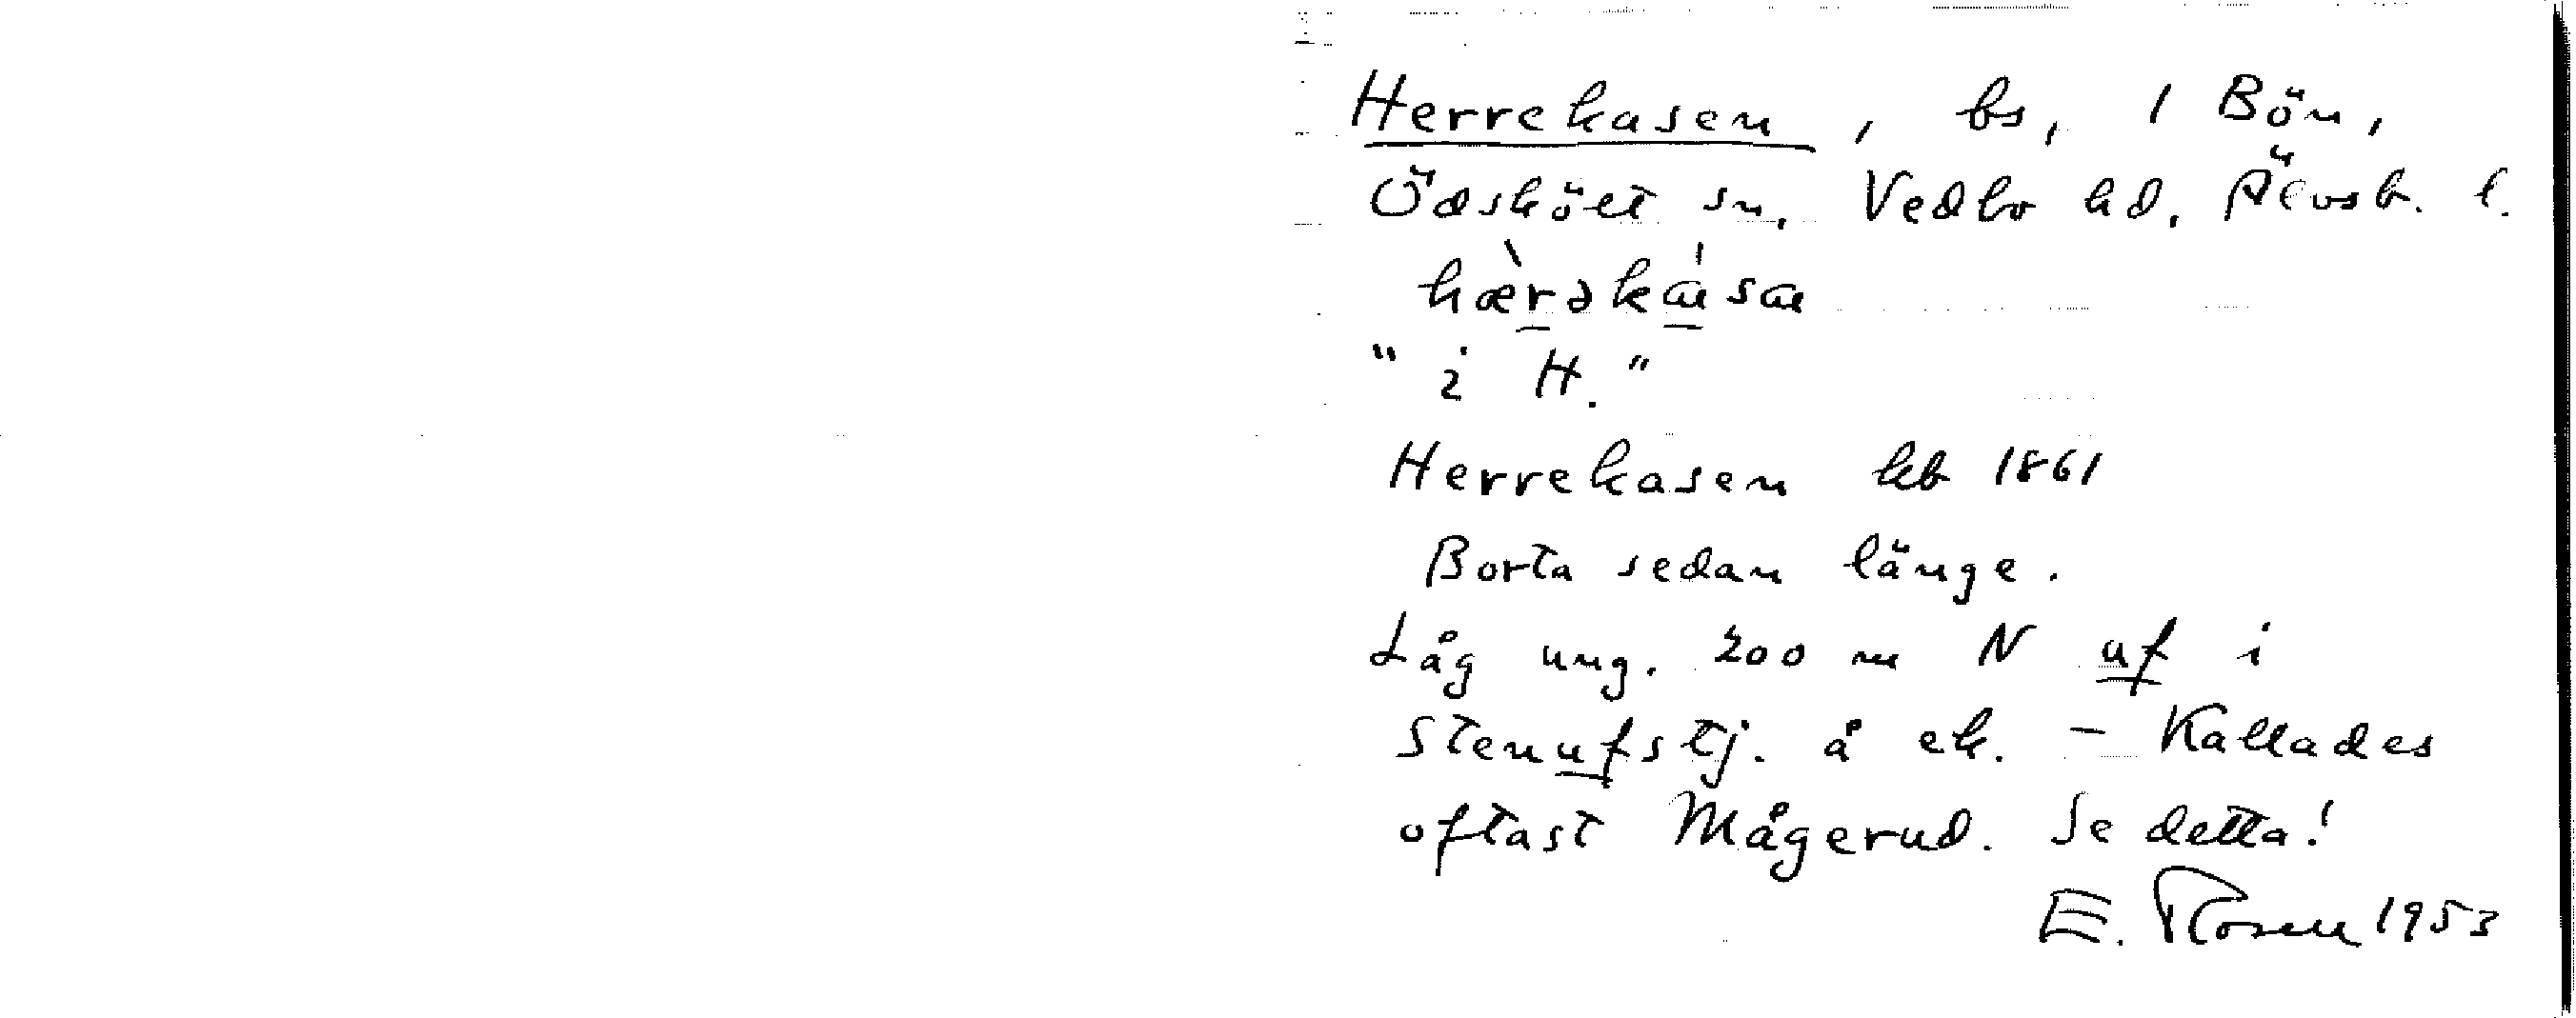 Herrekasen, bs, 1 Bön,
Ödskölt sn, Vedbo hd, Älvsb. l.
hæ̀rəkása
"i H."
Herrekasen hb 1861
Borta sedan länge.
Låg ung. 200 m N uf i
Stenufstj. å ek. - Kallades
oftast Mågerud. Se detta!
E. Rosen 1953